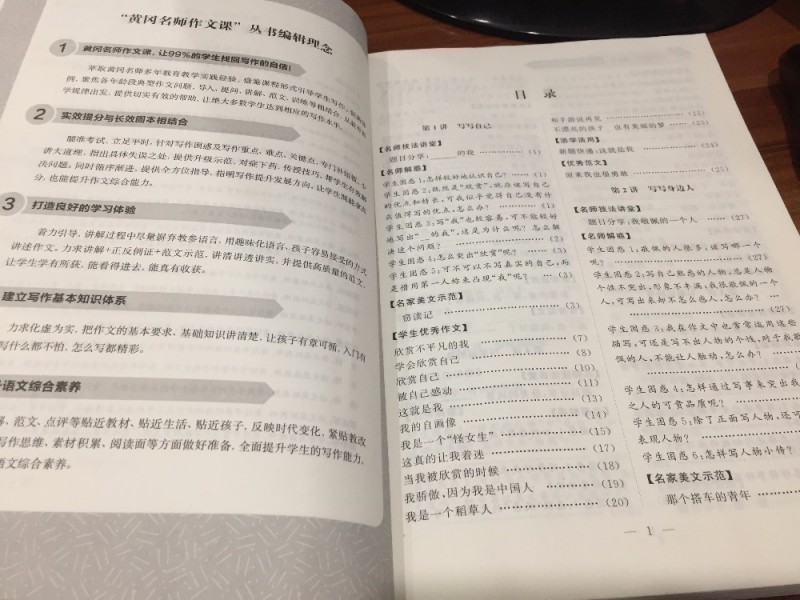 “黄冈名师作文课”丛书编辑理念
1 黄冈名师作文课，让99%的学生找回写作的自信！
萃取黄冈名师多年教育教学实践经验，借鉴课程形式引导学生写作
例，聚焦各年龄段典型作文问题，导入、提问、讲解、范文、训练等相结合，从最
学规律出发，提供切实有效的帮助，让绝大多数学生达到相应的写作水平。
2 实效提分与长效固本相结合
瞄准考试，立足平时，针对写作困惑及写作重点、难点、关键点，专门
讲大道理，指出具体失误之处，提供升级示范，对症下药，传授技巧，帮学生有效解
决问题；同时循序渐进，提供全方位指导，指明写作提升发展方向，让学生
分，也能提升作文综合能力。
3 打造良好的学习体验
着力引导，讲解过程中尽量摒弃教参语言，用趣味化语言、孩子容易接受的方式
讲述作文。力求讲解+正反例证+范文示范，讲清讲透讲实，并提供高质量的范文，
让学生学有所获，能看得进去，能真有收获。
建立写作基本知识体系
力求化虚为实，把作文的基本要求、基础知识讲清楚，让孩子有章可循，入门有
写什么都不怕，怎么写都精彩。
语文综合素养
、范文、点评等贴近教材、贴近生活、贴近孩子，反映时代变化，紧贴教改
写作思维、素材积累、阅读面等方面做好准备，全面提升学生的写作能力、
语文综合素养。
目 录
第1讲 写写自己
【名师技法讲堂】
题目分享：______的我 ……（1）
【名师解惑】
学生困惑1：怎样较好地认识自己？ ……（1）
学生困惑2：既然是“欣赏”，就应该写自己
的优点和特长，可我似乎觉得自己没有什
么值得写的优点，怎么办？ ……（1）
学生困惑3：写“我”也较容易，可不能较好
地写出“__的我”，这是为什么呢？怎么解
决这个问题？ ……（2）
学生困惑4：怎么突出“欣赏”呢？ ……（2）
学生困惑5：可不可以不写真实的自己，而
是借用第一人称来凸现“我”呢？ …（3）
【名家美文示范】
窃读记 ……（3）
【学生优秀作文】
欣赏不平凡的我 ……（7）
学会欣赏自己 ……（8）
欣赏自己 ……（10）
被自己感动 ……（11）
这就是我 ……（13）
我的自画像 ……（14）
我是一个“怪女生” ……（15）
这真的让我着迷 ……（17）
当我被欣赏的时候 ……（18）
我骄傲，因为我是中国人 ……（19）
我是一个稻草人 ……（20）
和于游说再见 ……
不漂亮的孩子 也有美丽的梦 ……
【活学活用】
新题快递：这就是我 ……（24）
【优秀范文】
原来我也很勇敢 ……（25）
第2讲 写写身边人
【名师技法讲堂】
题目分享：我敬佩的一个人 ……（27）
【名师解惑】
学生困惑1：敬佩的人很多，该写哪一个
呢？ ……（27）
学生困惑2：写自己熟悉的人物，总是人物
个性不突出，形象不丰满；我很敬佩的一个
人，可写出来却不怎么感人，怎么办？
学生困惑3：我在作文中也常常运用这些
描写，可还是写不出人物的个性，对于我敬
佩的人，不能让人触动，怎么办？ ……
学生困惑4：怎样通过写事来突出我
之人的可贵品质呢？ ……
学生困惑5：除了正面写人物，还可
表现人物？
学生困惑6：怎样写人物小传？ …
【名家美文示范】
那个搭车的青年 ……
— 1 —